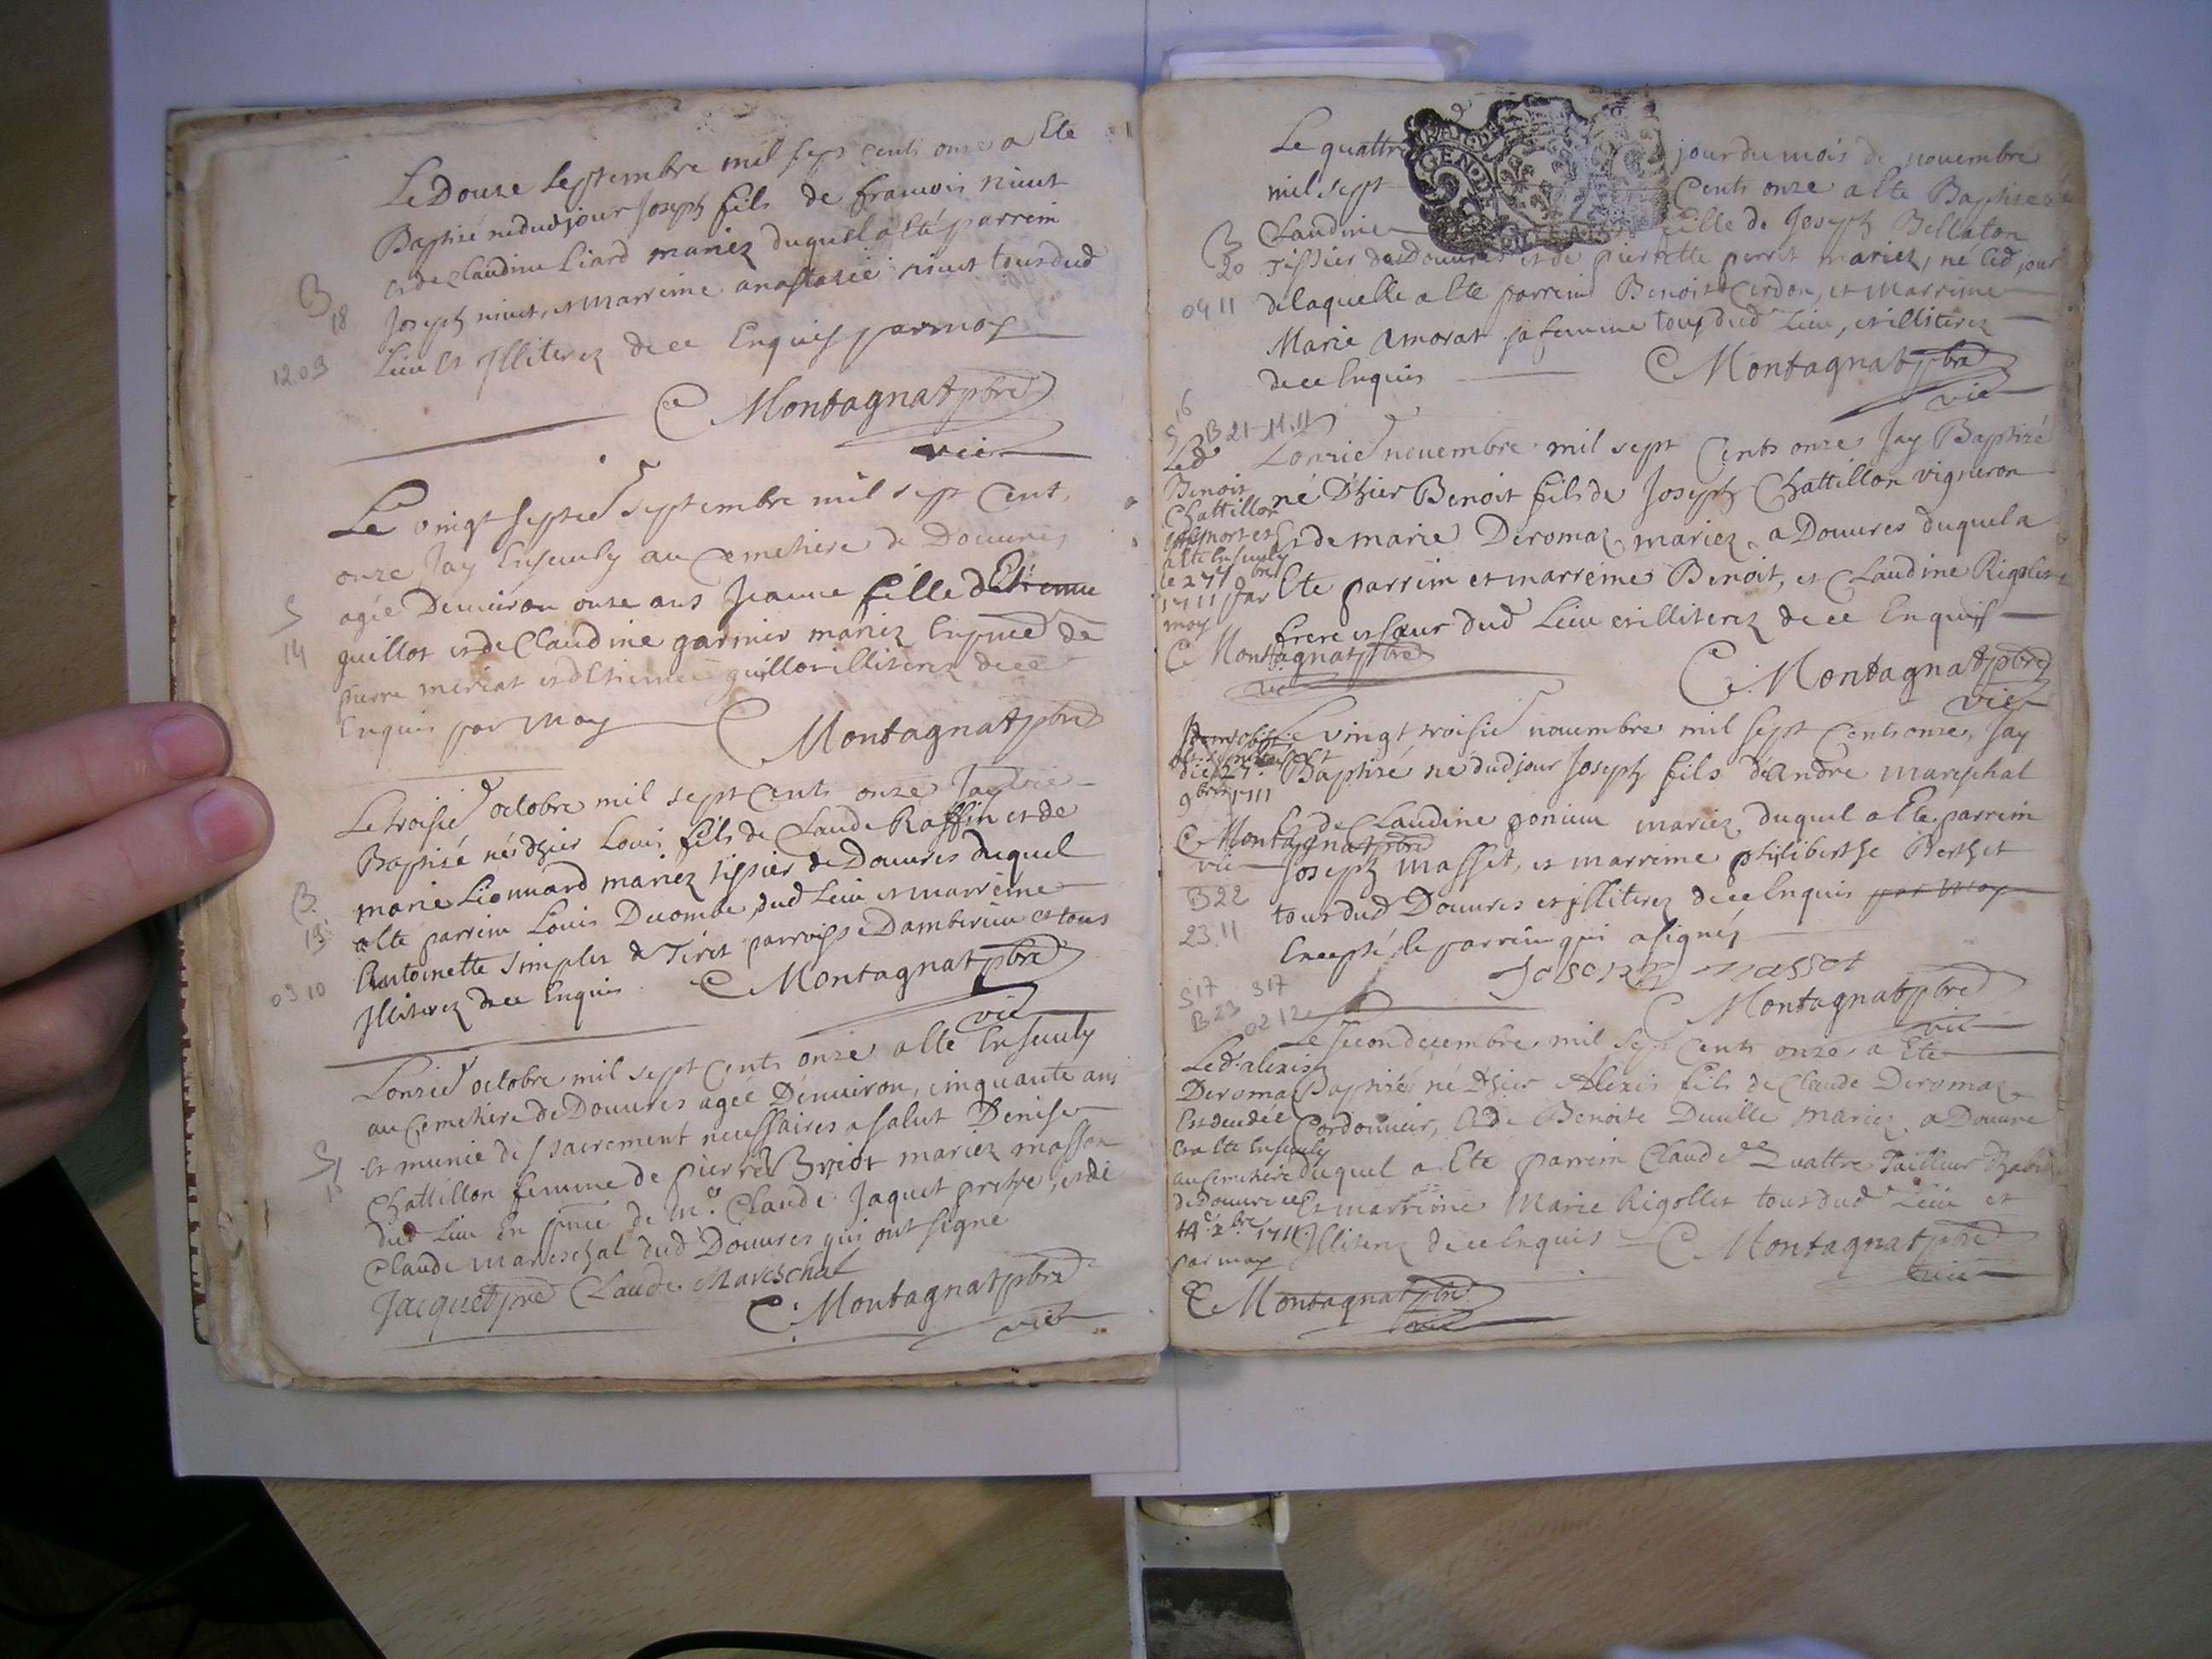 Le Douze Septembre mil sept cents onze a Ete
Baptisé né dud jour Joseph fils de francois nivet
et de claudine Liard mariez duquel a Eté parrein
Joseph nivet, et marreine anastasie nivet tous dud
Lieu et Illiterez de ce Enquis par moy
B
18
12.09
C Montagnat pbre
vic
Le vingt septie septembre mil sept Cent
onze Jay Ensevely au Cemetiere de Douvres
agée Denviron onze ans Jeanne fille dEtienne
guillot et de Claudine garnier mariez En pnce de
pierre meriat et dEtienne guillot illiterez de ce
Enquis par moy
S
14
C Montagnat pbre
Le troisie octobre mil sept Cents onze Jay
Baptisé né dhier Louis fils de Claude Raffin et de
marie Lionnard mariez tissier de Douvres duquel
a Ete parrein Louis Decombe dud Lieu et marreine
Antoinette Simplet de Tiret parroisse Damberieu et tous
Illiterez de ce Enquis
B
19
03 10
C Montagnat pbre
vic
Lonzie octobre mil sept Cents onze a Ete Ensevely
au Cemetiere de Douvres agée Denviron, cinquante ans
et munie des sacrement necessaires a salut Denise
Chattillon femme de pierre Briot mariez masson
dud Lieu En pnce de mre Claude Jaquet pretre, et de
Claude mareschal dud Douvres qui ont signe
S
15
Jacquet pre Claude Mareschal
C Montagnat pbre
vic
Le quattre jour du mois de novembre
mil sept Cents onze a Eté Baptisée
Claudine fille de Joseph Bellaton
Tissier de Douvres et de pierrette perret mariez, né led jour
de laquelle a Ete parrein Benoit Cerdon, et Marreine
Marie Amorat sa femme tous dud Lieu, et illiterez
de ce Enquis
B
20
04 11
C Montagnat pbre
vic
S 16
B 21 - 11.11
Lonzie novembre mil sept Cents onze Jay Baptizé
né Dhier Benoit fils de Joseph Chattillon vigneron
Et de marie Deromaz mariez a Douvres duquel a
Ete parrein et marreine Benoit, et Claudine Rigollet
frere et sœur dud Lieu et illiterez de ce Enquis
C Montagnat pbre
vic
Led
Benoit
Chattillon
est mort et
a Ete Ensevely
le 27 9bre
1711 par
moy
C Montagnat pbre
vic
Le vingt troisie novembre mil sept Cents onze, Jay
Baptisé né dud jour Joseph fils dAndré mareschal
Et de Claudine poncin mariez duquel a Ete parrein
Joseph masset, et marreine philiberthe Berthet
tous dud Douvres et illiterez de ce Enquis par moy
Excepté le parrein qui a signé
Joseph massot
C Montagnat pbre
vic
die 27
9bris 1711
C Montagnat pbre
vic
B 22
23.11
S 17 S 17
B 23
02 12
Le second decembre mil sept Cents onze a Ete
Baptisé né Dhier Alexis fils de Claude Deromaz
Cordonnier, et de Benoite Deville mariez a Douvre
duquel a Ete parrein Claude Quattre Tailleur Dhabit
Et marreine Marie Rigollet tous dud Lieu et
Illiterez de ce Enquis
C Montagnat pbre
vic
Led alexis
Deromaz
Est decedée
Et a Ete Ensevely
au Cemetiere
de Douvre le
14e xbre 1711
par moy
C Montagnat pbre
vic